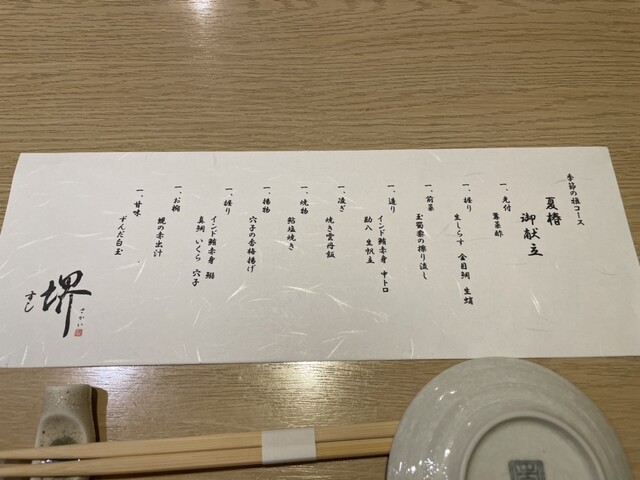 季節の種コース
夏椿 御献立
一、先付
蓴菜酢
一、握り
生しらす 金目鯛 生蛸
一、前菜
玉蜀黍の擦り流し
一、造り
インド鮪赤身 中トロ
助八 生帆立
一、凌ぎ
焼き雲丹飯
一、焼物
鮎塩焼き
一、揚物
穴子の香梅揚げ
一、握り
インド鮪赤身 鯵
真鯛 いくら 穴子
一、お椀
蜆の赤出汁
一、甘味
ずんだ白玉
すし 堺
さかい